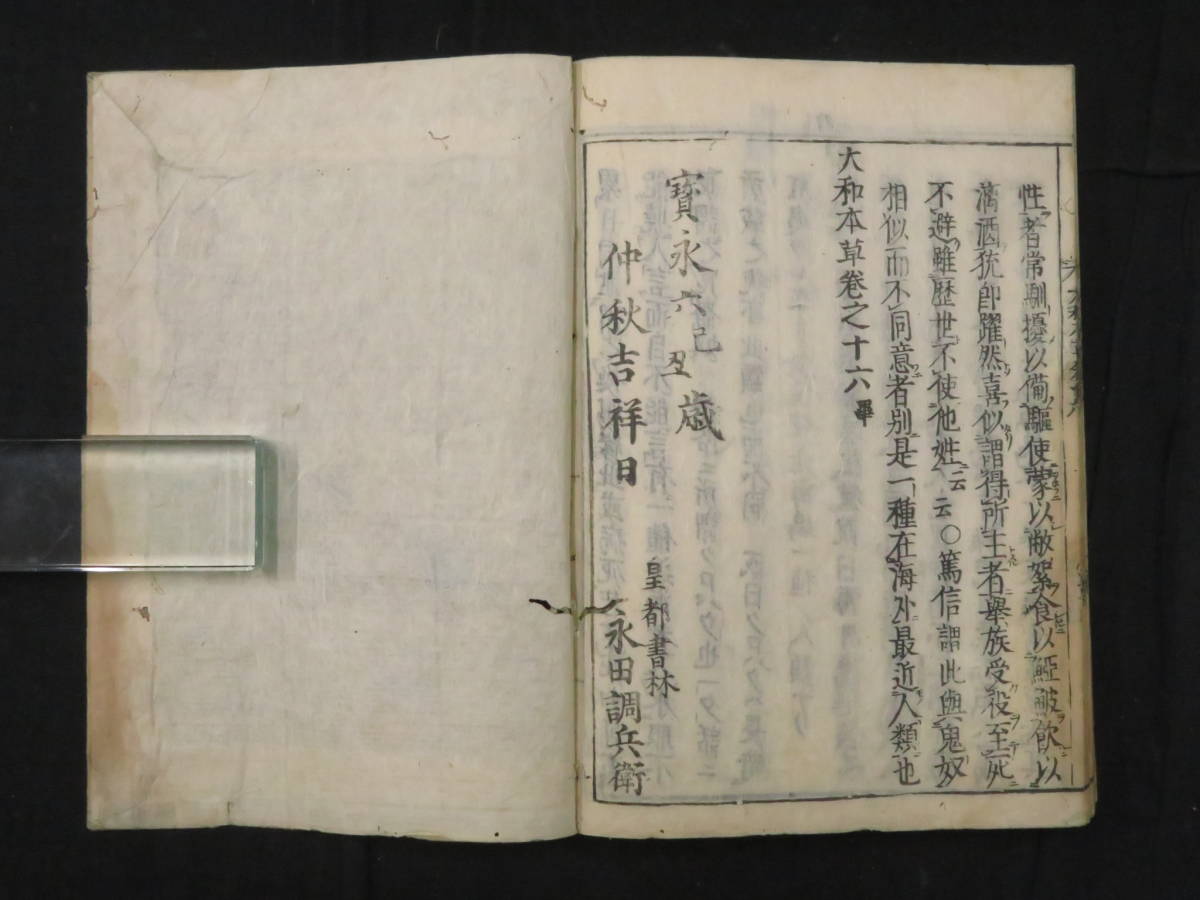 性者常馴擾以備驅使蒙以敝絮食以鯹鮍飲以
滴酒犹即躍然喜似謂得所主者舉族受役至死
不避雖歷世不使他姓云云○篤信謂此與鬼奴
相似而不同意者別是一種在海外最近人類也
大和本草卷之十六畢
寶永六己丑歲
仲秋吉祥日
皇都書林
永田調兵衛